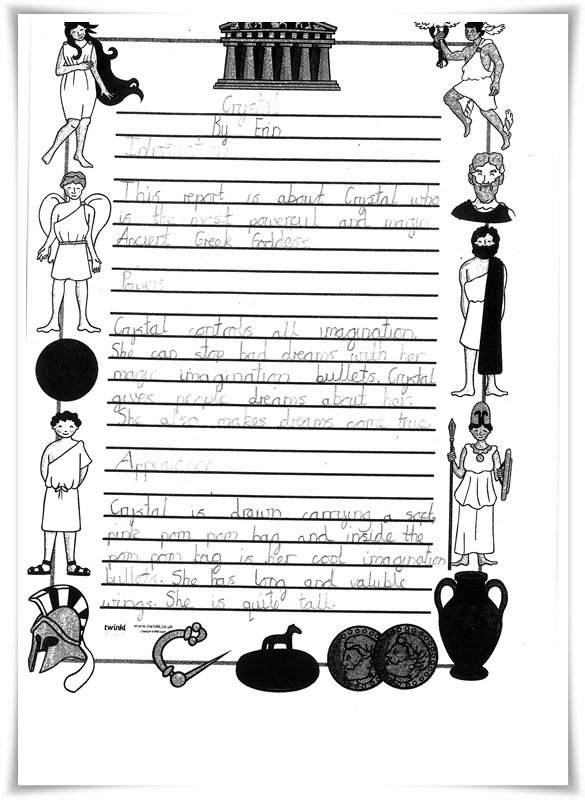 Crystal
By Erin
Introduction
This report is about Crystal who
is the most powercul and magic
Ancient Greek Goddess
Powers
Crystal controls all imagination.
She can stop bad dreams with her
magic imagination bullets. Crystal
gives people dreams about her.
She also makes dreams come true.
Appearence
Crystal is drawn carrying a soft,
pink pom pom bag and inside the
pom pom bag is her cool imagination
bullets. She has long and valuble
wings. She is quite tall.
twinkl www.twinkl.co.uk